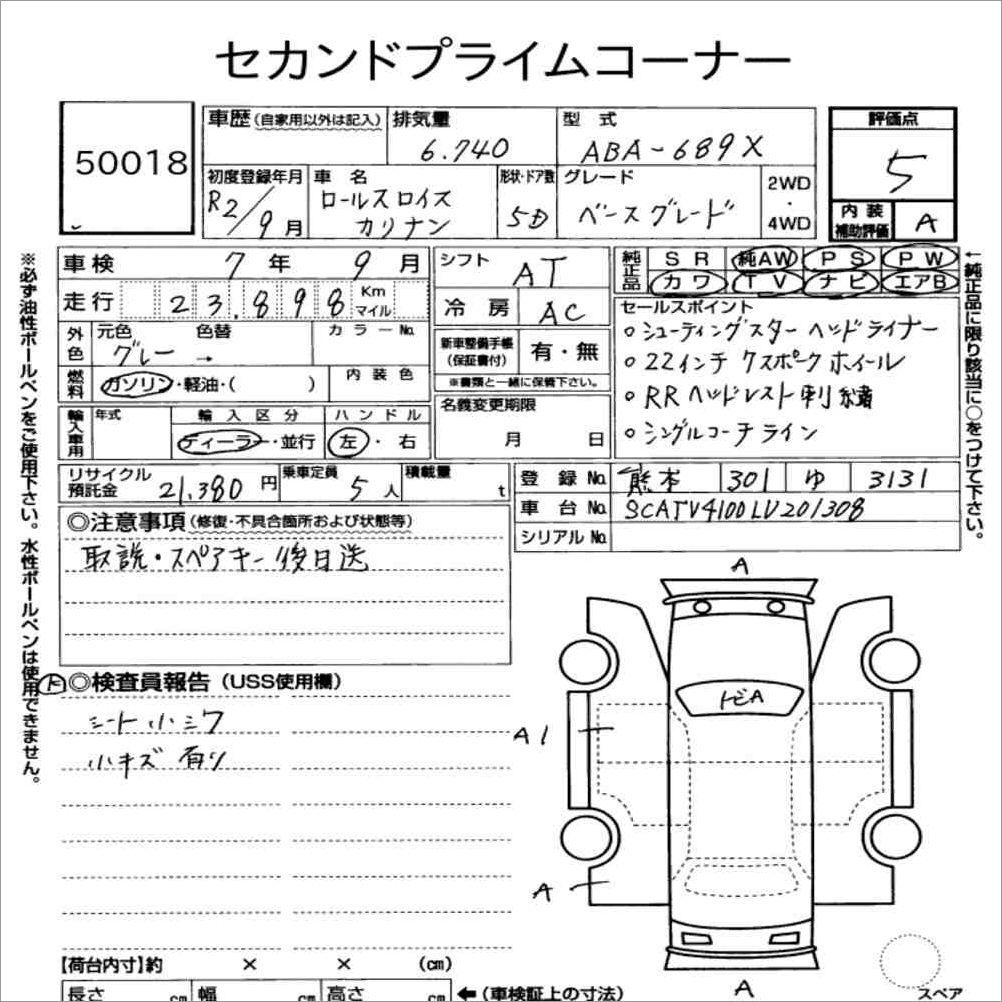 セカンドプライムコーナー
50018
車歴 (自家用以外は記入)
排気量
6.740
型式
ABA-689X
評価点
5
内装補助評価
A
初度登録年月
R2/9月
車名
ロールスロイス
カリナン
形状・ドア数
5D
グレード
ベースグレード
2WD
・
4WD
車検 7年 9月
走行 23.898 Km
マイル
外色
元色 色替
グレー →
カラーNo.
燃料
ガソリン・軽油・( )
内装色
輸入車用
年式
輸入区分
ディーラー・並行
ハンドル
左・右
シフト
AT
冷房
AC
新車整備手帳
(保証書付)
有・無
※書類と一緒に保管下さい。
名義変更期限
月 日
純正品
SR 純AW PS PW
カワ TV ナビ エアB
セールスポイント
○シューティングスター ヘッドライナー
○22インチ 7スポーク ホイール
○RRヘッドレスト刺繍
○シングルコーチライン
リサイクル預託金
21,380円
乗車定員
5人
積載量
t
登録No. 熊本 301 ゆ 3131
車台No. SCATV4100LU201308
シリアルNo.
◎注意事項(修復・不具合箇所および状態等)
取説・スペアキー後日送
下 ◎検査員報告(USS使用欄)
シート小シワ
小キズ有り
A
トビA
A1
A
A
スペア
【荷台内寸】約 × × (cm)
長さ cm 幅 cm 高さ cm ←(車検証上の寸法)
※必ず油性ボールペンをご使用下さい。水性ボールペンは使用できません。
←純正品に限り該当に○をつけて下さい。